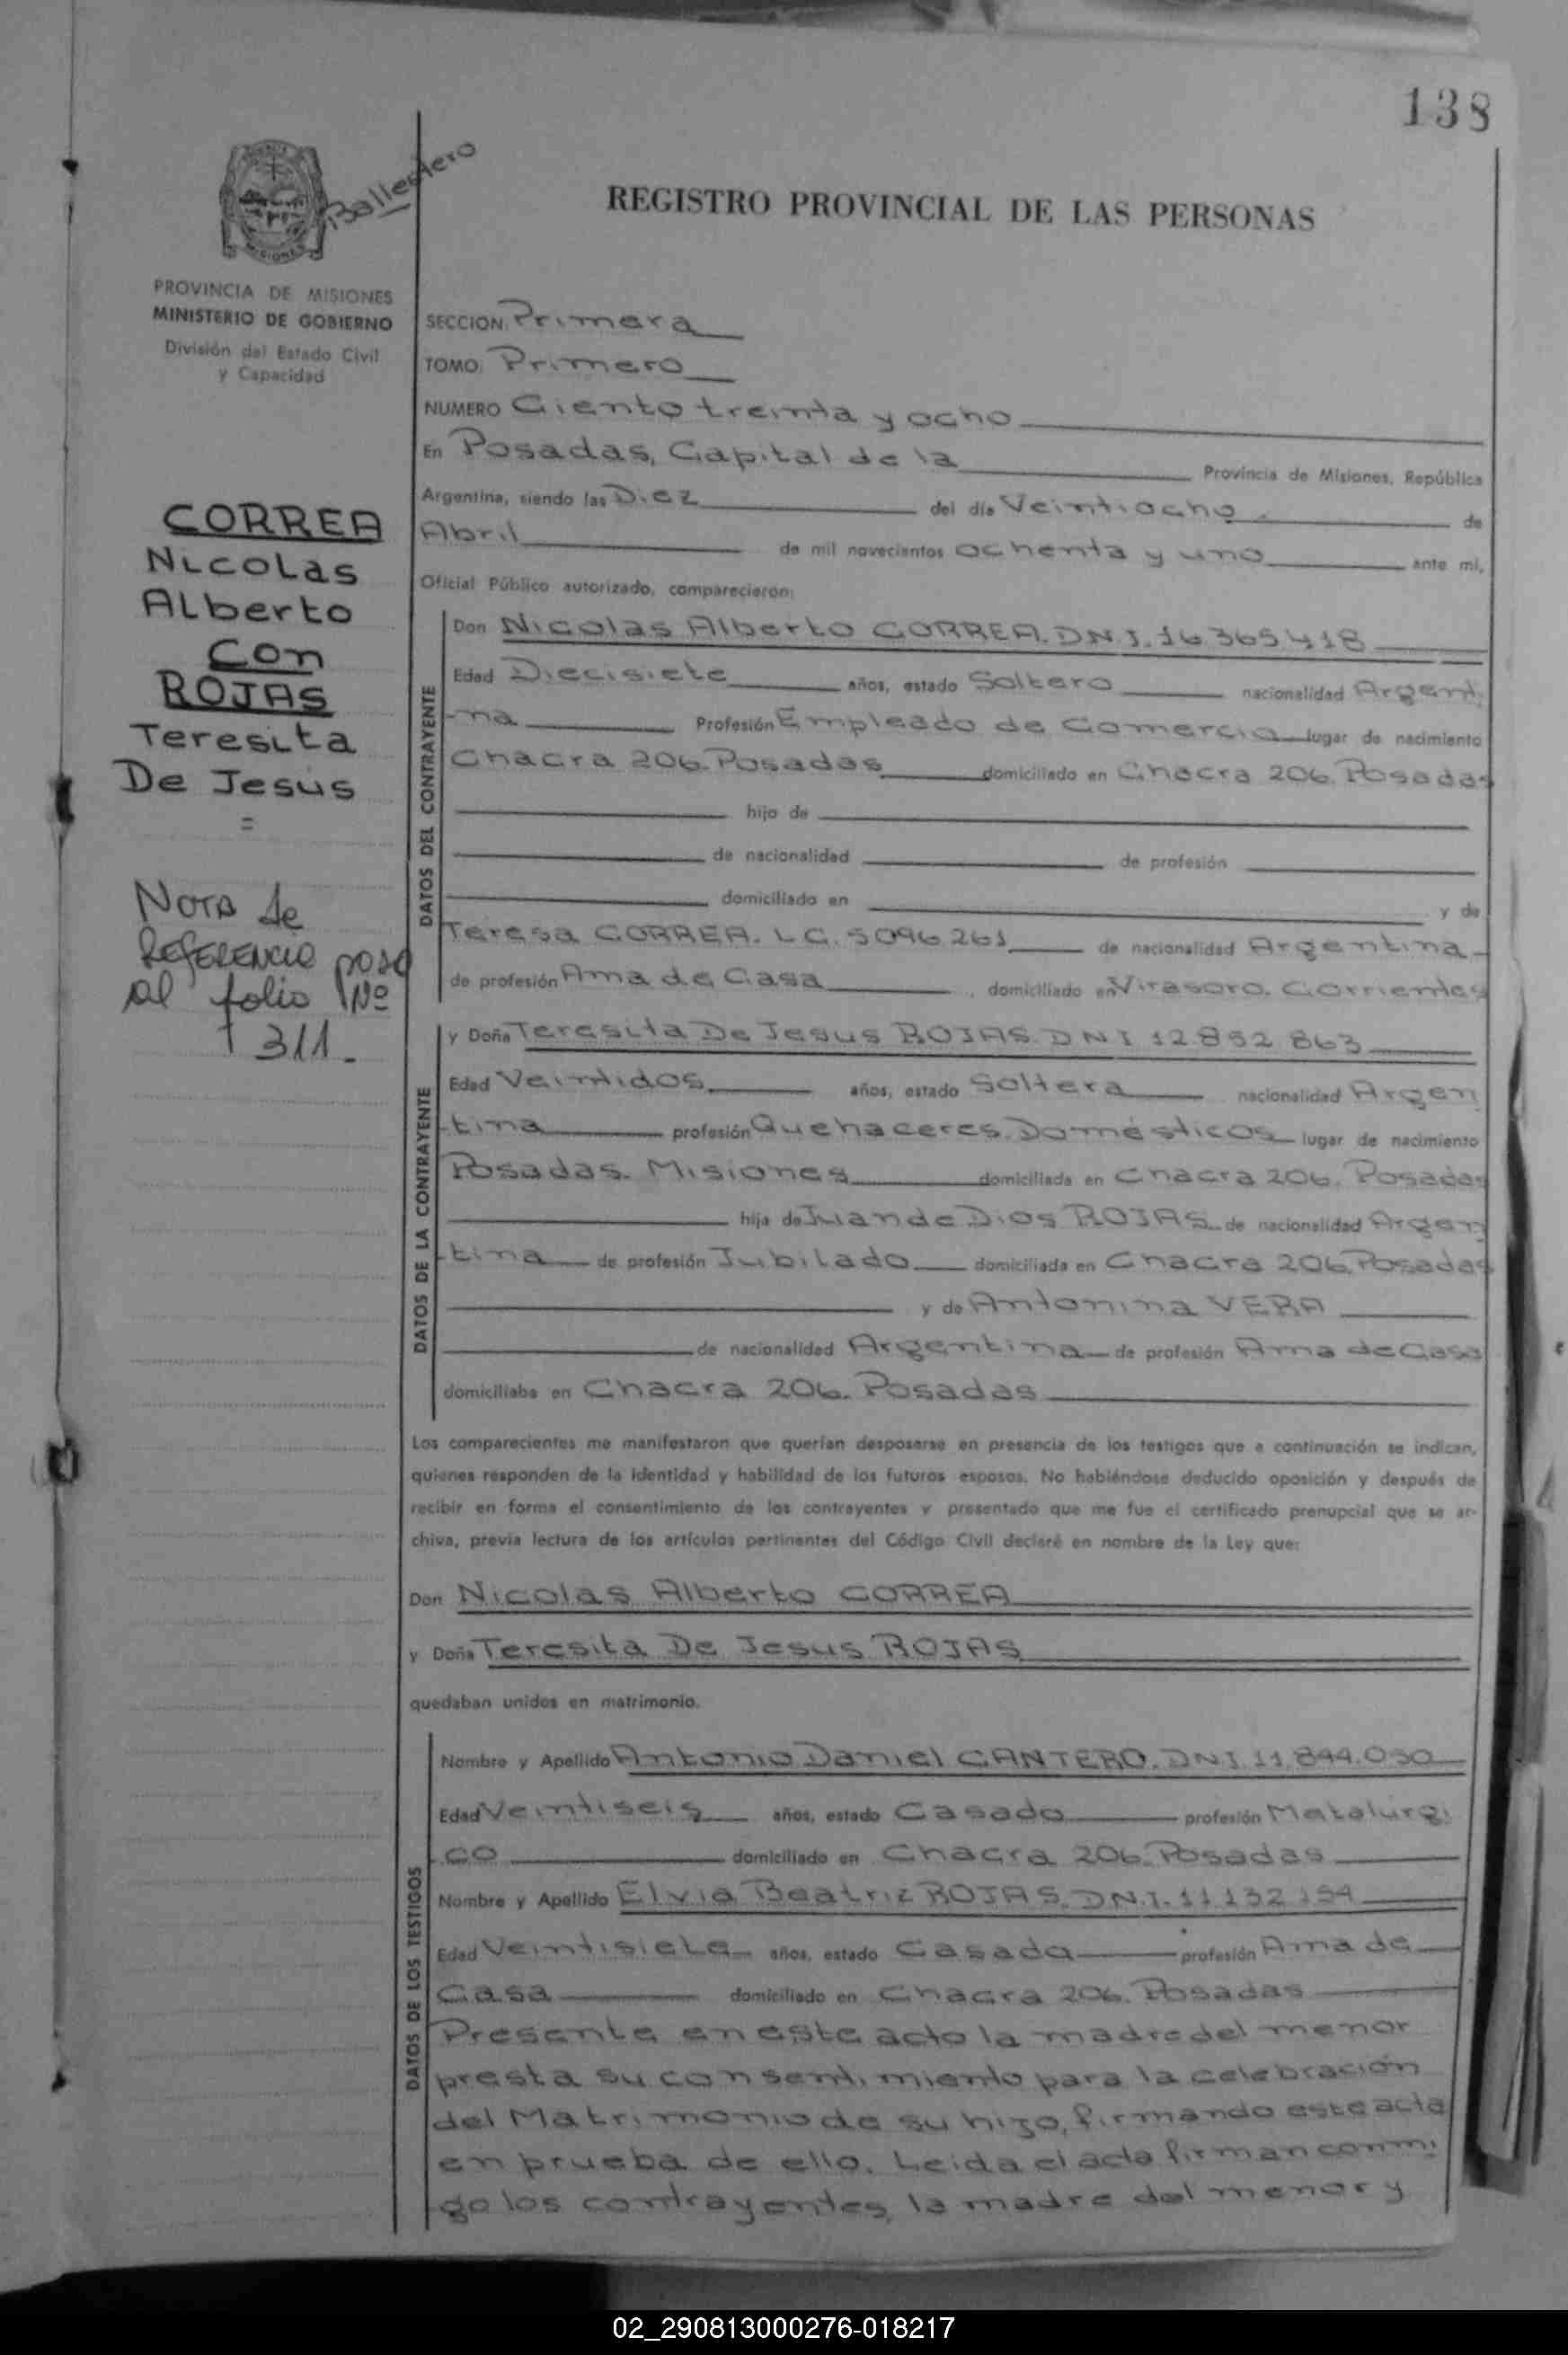 138
Ballestero
MISIONES
PROVINCIA DE MISIONES
MINISTERIO DE GOBIERNO
División del Estado Civil
y Capacidad
CORREA
Nicolas
Alberto
Con
ROJAS
Teresita
De Jesús
=
Nota de
Referencia paso
al folio Nº
311.
REGISTRO PROVINCIAL DE LAS PERSONAS
SECCION: Primera
TOMO: Primero
NUMERO Ciento treinta y ocho
En Posadas, Capital de la Provincia de Misiones, República
Argentina, siendo las Diez del día Veintiocho de
Abril de mil novecientos ochenta y uno ante mí,
Oficial Público autorizado, comparecieron:
DATOS DEL CONTRAYENTE
Don Nicolas Alberto CORREA. DNI. 16.365.418
Edad Diecisiete años, estado Soltero nacionalidad Argenti
-na Profesión Empleado de Comercio lugar de nacimiento
Chacra 206. Posadas domiciliado en Chacra 206. Posadas
hijo de
de nacionalidad de profesión
domiciliado en y de
Teresa CORREA. L.C. 5096261 de nacionalidad Argentina-
de profesión Ama de Casa, domiciliado en Virasoro. Corrientes
DATOS DE LA CONTRAYENTE
y Doña Teresita De Jesus ROJAS DNI 12 852 863
Edad Veintidos años, estado Soltera nacionalidad Argen
-tina profesión Quehaceres Domésticos lugar de nacimiento
Posadas. Misiones domiciliada en Chacra 206. Posadas
hija de Juan de Dios ROJAS de nacionalidad Argen
-tina de profesión Jubilado domiciliada en Chacra 206. Posadas
y de Antonina VERA
de nacionalidad Argentina de profesión Ama de Casa
domiciliaba en Chacra 206. Posadas
Los comparecientes me manifestaron que querían desposarse en presencia de los testigos que a continuación se indican,
quienes responden de la identidad y habilidad de los futuros esposos. No habiéndose deducido oposición y después de
recibir en forma el consentimiento de los contrayentes y presentado que me fue el certificado prenupcial que se ar-
chiva, previa lectura de los artículos pertinentes del Código Civil declaré en nombre de la Ley que:
Don Nicolas Alberto CORREA
y Doña Teresita De Jesus ROJAS
quedaban unidos en matrimonio.
DATOS DE LOS TESTIGOS
Nombre y Apellido Antonio Daniel CANTERO. DNI. 11.844.030
Edad Veintiseis años, estado Casado profesión Matalurgi
-co domiciliado en Chacra 206. Posadas
Nombre y Apellido Elvia Beatriz ROJAS. DN.I. 11132154
Edad Veintisiete años, estado Casada profesión Ama de
Casa domiciliado en Chacra 206. Posadas
Presente en este acto la madre del menor
presta su consentimiento para la celebración
del Matrimonio de su hijo, firmando este acta
en prueba de ello. Leida el acta firman conmi
go los contrayentes, la madre del menor y
02_290813000276-018217